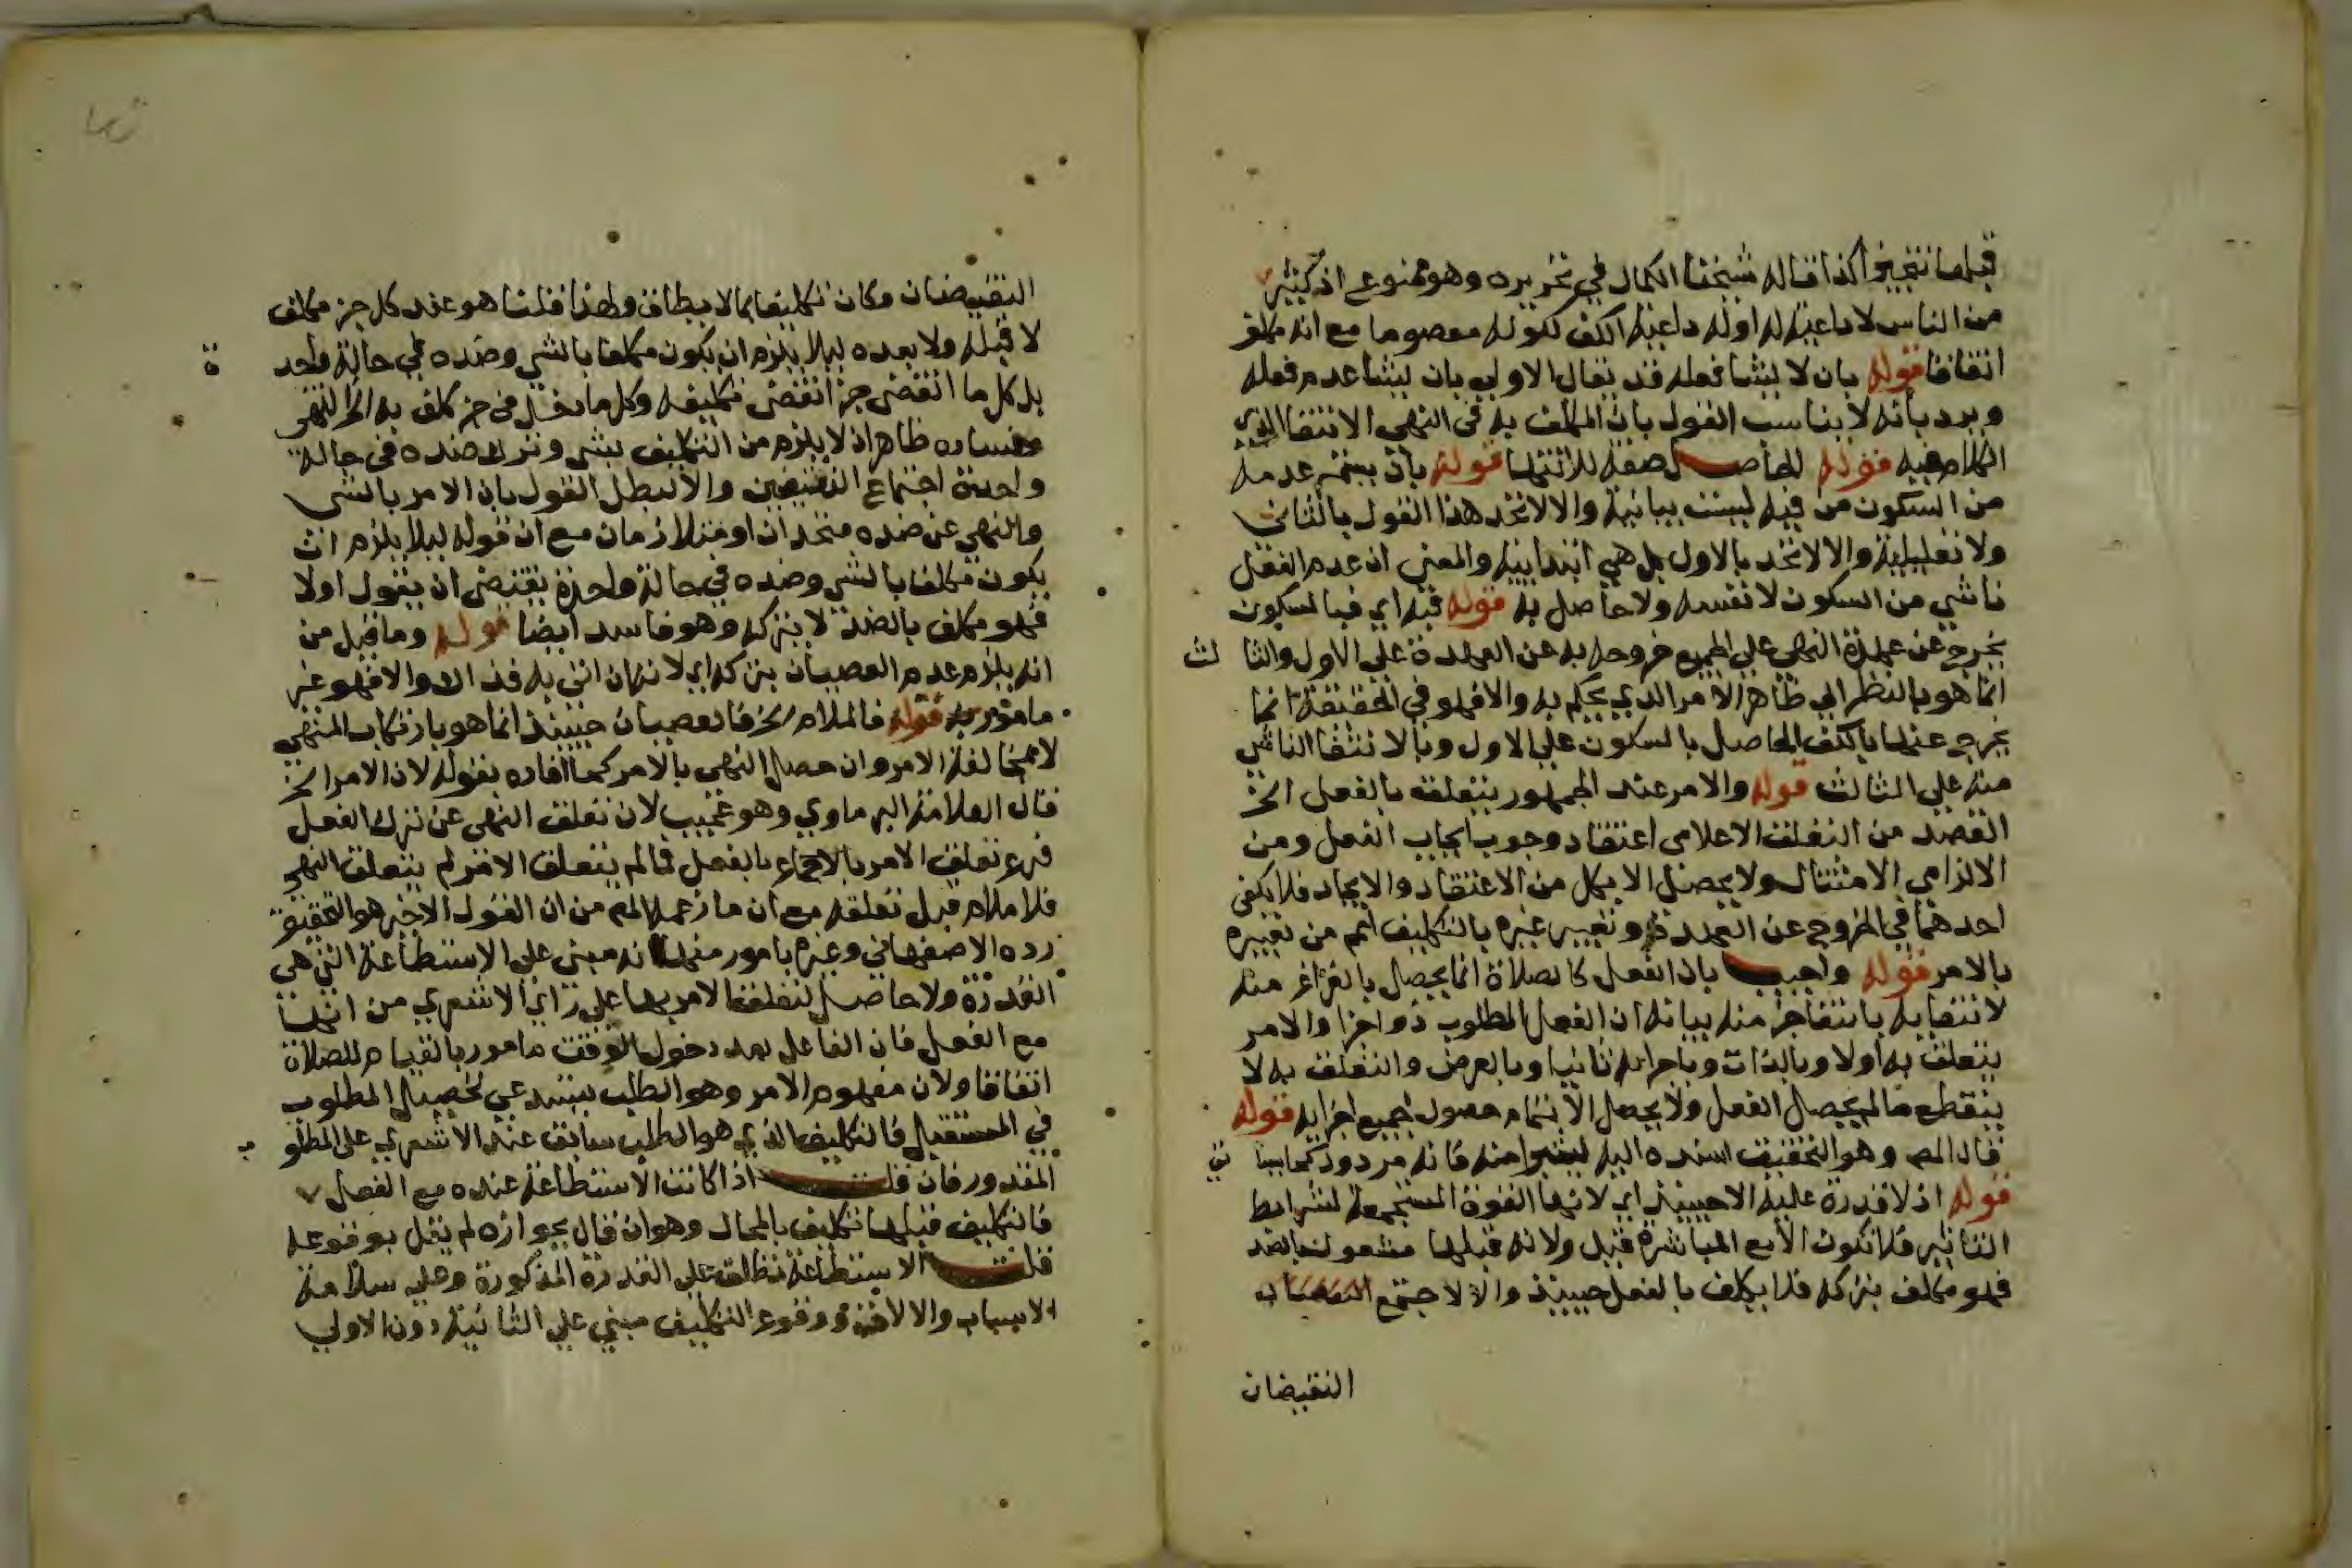 قبلها تنجيزا كذا قاله شيخنا الكمال في تحريره وهو ممنوع اذ كثير
من الناس لا داعية له اوله داعية الكف ككونه معصوما مع انه مكلف
اتفاقا قوله بان لا يشا فعله قد يقال الاولي بان يشا عدم فعله
ويرد بانه لا يناسب القول بان المكلف به في النهي الانتفا الذي
الكلام فيه قوله الحاصل صفة للانتها قوله بان يستمر عدمه
من السكون من فيه ليست بيانية والا لاتحد هذا القول بالثاني
ولا تعليلية والا لاتحد بالاول بل هي ابتدايية والمعني ان عدم الفعل
ناشي من السكون لا نفسه ولا حاصل به قوله فيه اي فبالسكون
يخرج عن عهدة النهي علي الجميع خروجه به عن العهدة علي الاول والثالث
انما هو بالنظر الي ظاهر الامر الذي يحكم به والا فهو في الحقيقة انما
يخرج عنها بالكف الحاصل بالسكون علي الاول وبالانتفا الناشي
منه علي الثالث قوله والامر عند الجمهور يتعلق بالفعل الخ
القصد من التعلق الاعلامي اعتقاد وجوب ايجاب الفعل ومن
الالزامي الامتثال ولا يحصل الا بكل من الاعتقاد والايجاد فلا يكفي
احدهما في الخروج عن العهدة وتعبير غيره بالتكليف اعم من تعبيره
بالامر قوله واجيب بان الفعل كالصلاة انما يحصل بالفراغ منه
لانتفايه بانتفا جز منه بيانه ان الفعل المطلوب ذو اجزا والامر
يتعلق به اولا وبالذات وباجزايه ثانيا وبالعرض والتعلق به لا
ينقطع مالم يحصل الفعل ولا يحصل الا بتمام حصول جميع اجزايه قوله
قال المص وهو التحقيق اسنده اليه ليتبرا منه فانه مردود كما بينا
قوله اذ لا قدرة عليه الا حينيذ اي لانها القوة المستجمعة لشرايط
التاثير فلا تكون الا مع المباشرة قبل ولانه قبلها مشغول بالضد
فهو مكلف بتركه فلا يكلف بالفعل حينيذ والا لاجتمع النقيضان
النقيضان
النقيضان وكان تكليفا بما لا يطاق ولهذا قلنا هو عند كل جز مكلف
لا قبله ولا بعده ليلا يلزم ان يكون مكلفا بالشي وضده في حالة واحدة
بل كل ما انقضي جز انقضي تكليفه وكل ما دخل في جز كلف به الخ انتهي
وفساده ظاهر اذ لا يلزم من التكليف بشي وترك ضده في حالة
واحدة اجتماع النقيضين والا لبطل القول بان الامر بالشي
والنهي عن ضده متحدان او متلازمان مع ان قوله ليلا يلزم ان
يكون مكلفا بالشي وضده في حالة واحدة يقتضي ان يقول اولا
فهو مكلف بالضد لا بتركه وهو فاسد ايضا قوله وما قيل من
انه يلزم عدم العصيان بتركه اي لانه ان اتي به فذاك والا فهو غير
مامور به قوله فالملام الخ فالعصيان حينيذ انما هو بارتكاب المنهي
لا بمخالفة الامر وان حصل النهي بالامر كما افاده بقوله لان الامر الخ
قال العلامة البرماوي وهو عجيب لان تعلق النهي عن ترك الفعل
فرع تعلق الامر بالاجماع بالفعل فمالم يتعلق الامر لم يتعلق النهي
فلا ملام قبل تعلقه مع ان ما زعمه المص من ان القول الاخير هو التحقيق
رده الاصفهاني وغيره بامور منها انه مبني علي الاستطاعة التي هي
القدرة ولا حاصل لتعلق الامر بها علي راي الاشعري من انها
مع الفعل فان الفاعل بعد دخول الوقت مامور بالقيام للصلاة
اتفاقا ولان مفهوم الامر وهو الطلب يستدعي تحصيل المطلوب
في المستقبل فالتكليف الذي هو الطلب سابق عند الاشعري علي المطلوب
المقدور فان قلت اذا كانت الاستطاعة عنده مع الفعل
فالتكليف قبلها تكليف بالمحال وهو ان قال بجوازه لم يقل بوقوعه
قلت الاستطاعة تطلق علي القدرة المذكورة وعلي سلامة
الاسباب والالات ووقوع التكليف مبني علي الثانية دون الاولي